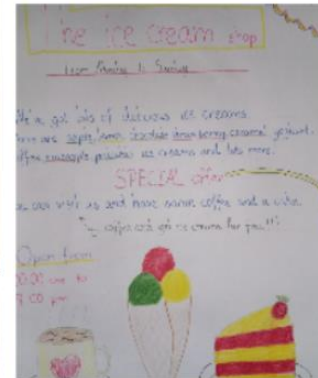 The ice cream shop
from Monday to Sunday
We've got lots of delicious ice creams.
There are apple, lemon, chocolate, strawberry, caramel, yoghurt,
coffee, pistachio ice creams and lots more.
SPECIAL offer
You can with us and have some coffee and a cake.
coffee and get ice cream for you!!!
Open from
00 to
9:00 pm